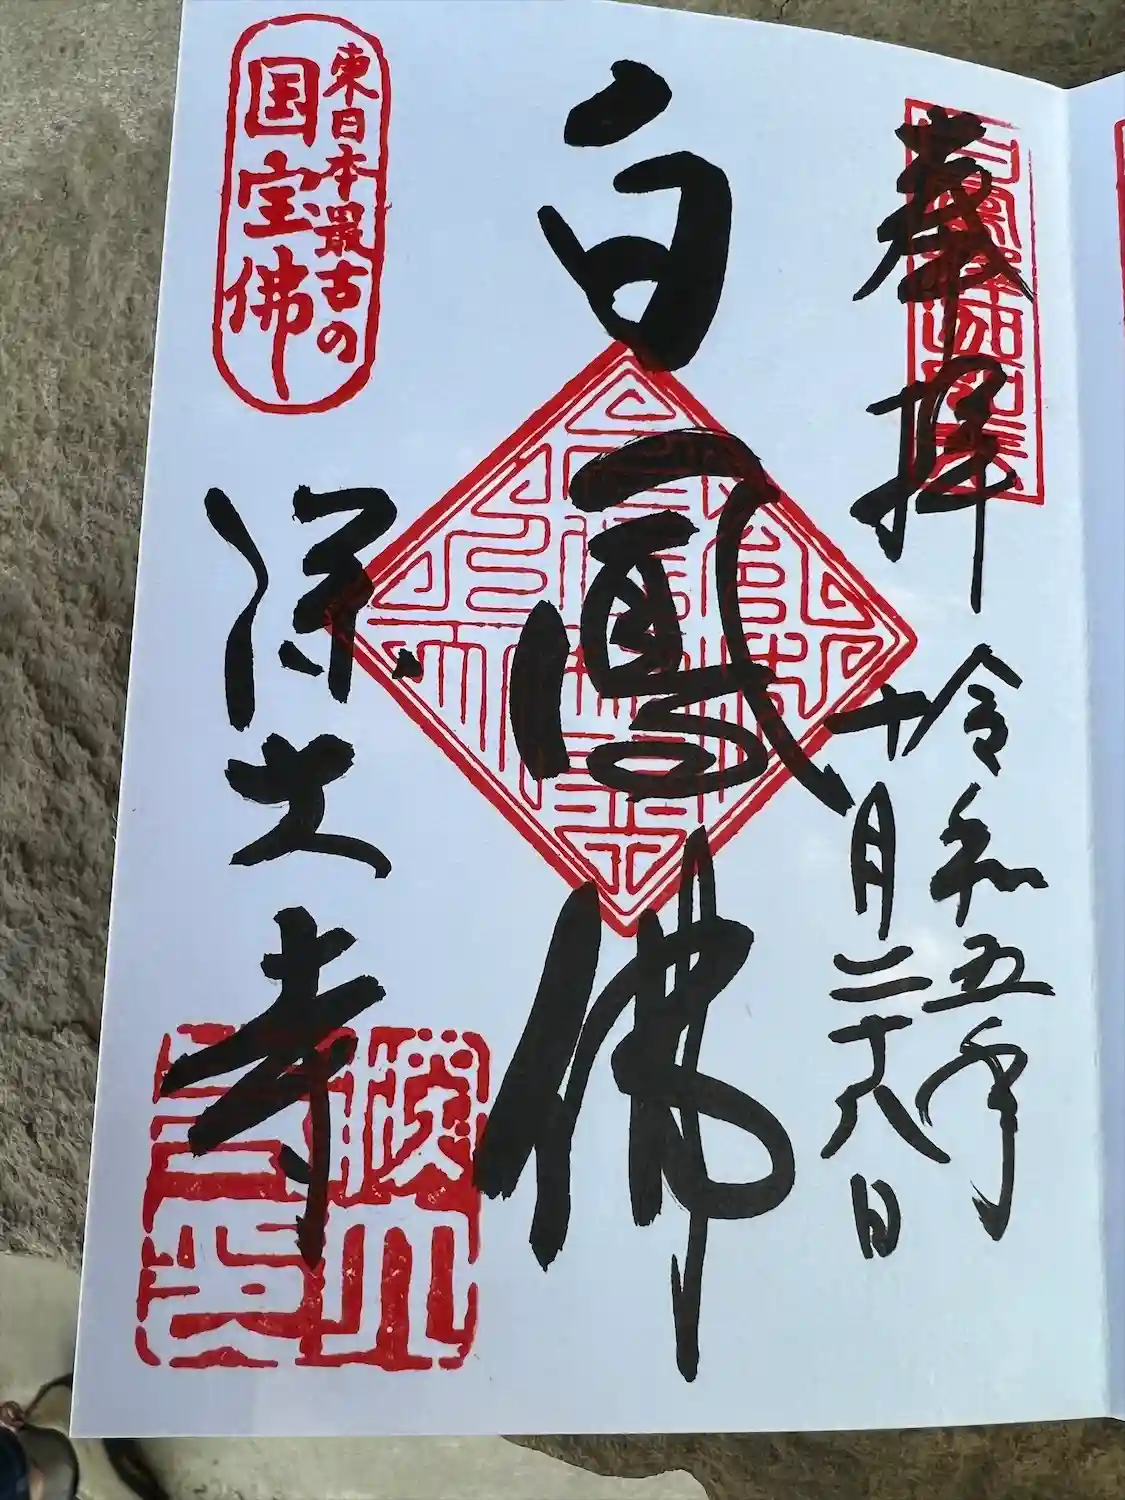 奉拝
令和五年
十月二十八日
白鳳佛
深大寺
東日本最古の
国宝佛